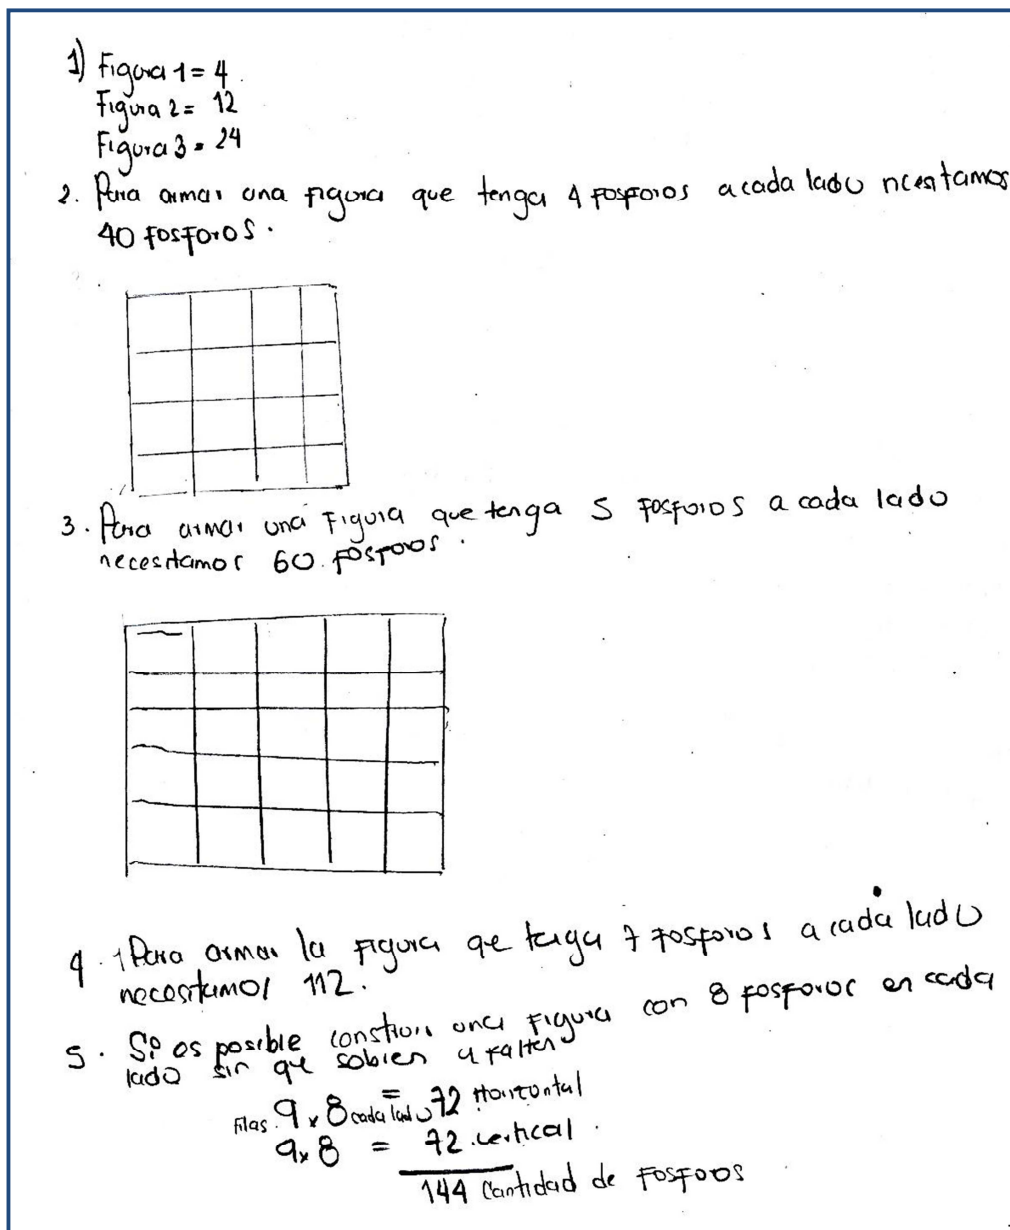 1) Figura 1 = 4.
Figura 2 = 12
Figura 3 = 24
2. Para armar una figura que tenga 4 fosforos a cada lado ncesitamos
40 fosforos.
3. Para armar una Figura que tenga 5 fosforos a cada lado
necesitamos 60 fosforos.
4. Para armar la figura qe tenga 7 fosforos a cada lado
necesitamos 112.
5. Si es posible construir una figura con 8 fosforos en cada
lado sin qe sobren y falten
Filas 9 x 8 cada lado = 72 Horizontal
9 x 8 = 72 vertical.
144 Cantidad de Fosforos